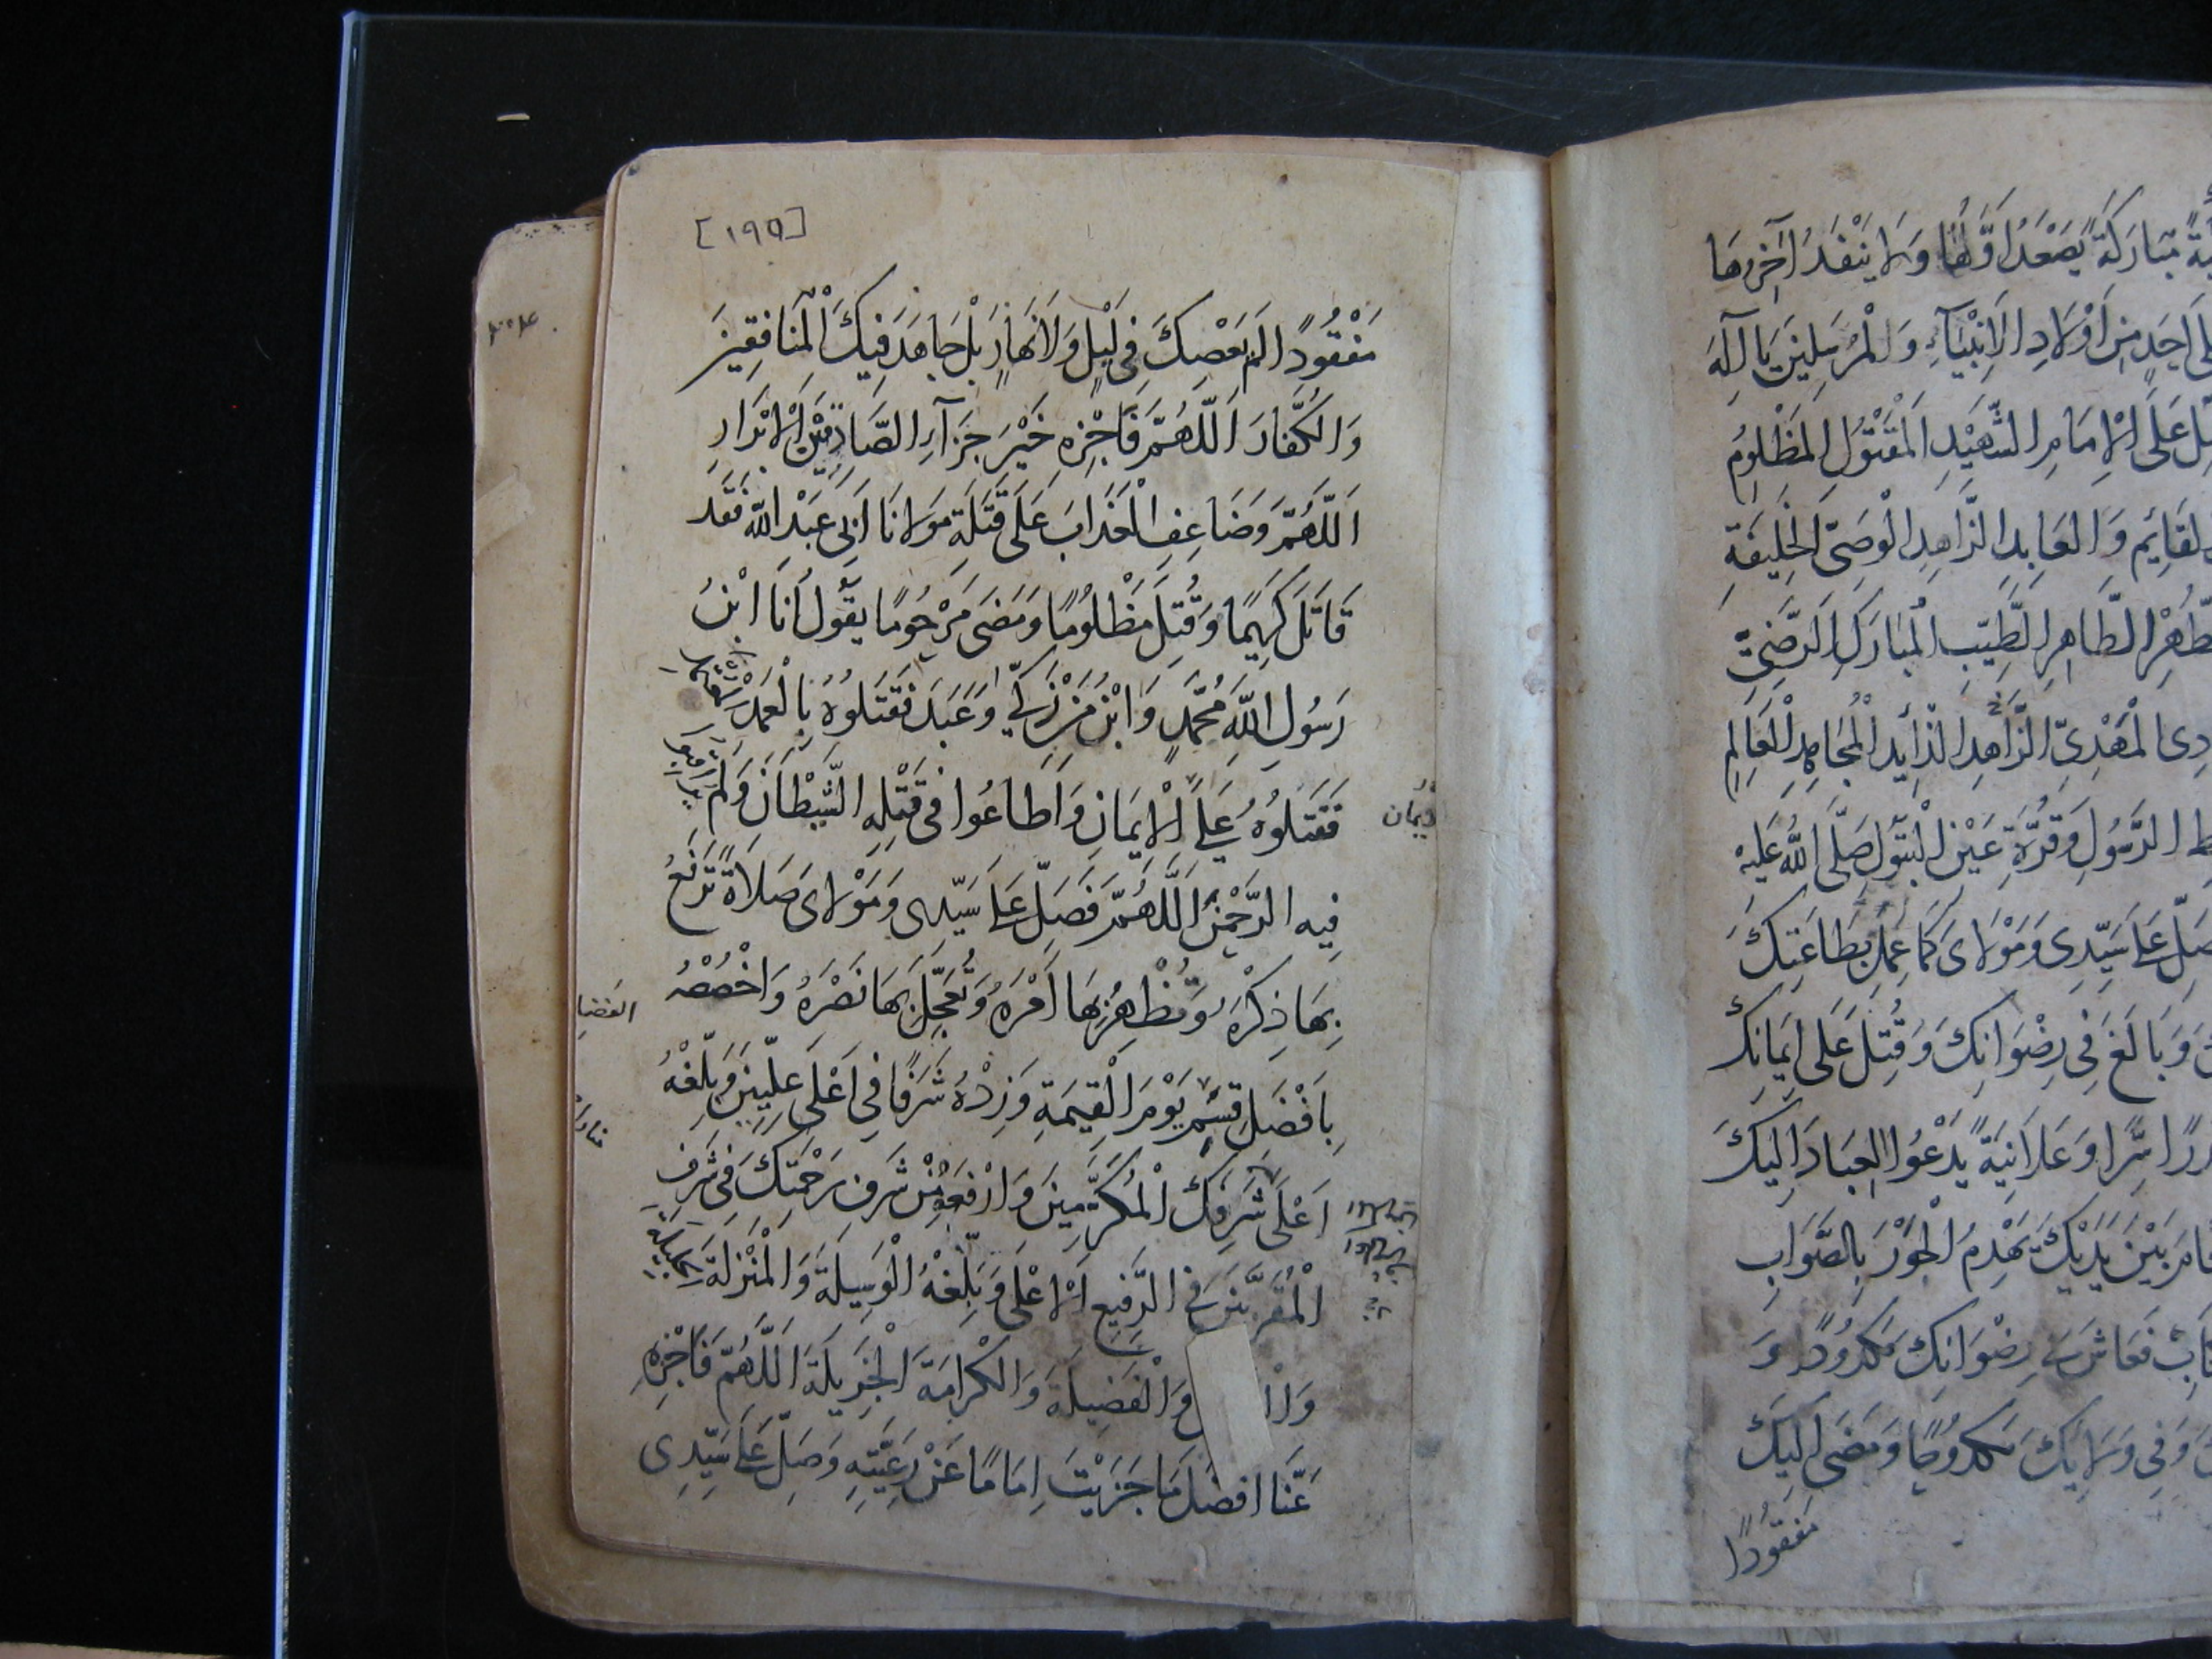 يَةً مُبَارَكَةً يَصْعَدُ اَوَّلُهَا وَلَا يَنْفَدُ اٰخِرُهَا
اَحَدٍ مِنْ اَوْلَادِ الْاَنْبِيَآءِ وَالْمُرْسَلِينَ يَا اِلٰهَ
عَلَى الْاِمَامِ الشَّهِيْدِ الْمَقْتُوْلِ الْمَظْلُوْمِ
لْقَائِمِ وَالْعَابِدِ الزَّاهِدِ الْوَصِيِّ الْخَلِيفَةِ
الطَّاهِرِ الطَّيِّبِ الْمُبَارَكِ الرَّضِيِّ
دِى الْمَهْدِىِّ الزَّاهِدِ الذَّائِدِ الْمُجَاهِدِ الْعَالِمِ
الرَّسُولِ وَقُرَّةِ عَيْنِ الْبَتُولِ صَلَّى اللّٰهُ عَلَيْهِ
صَلِّ عَلَى سَيِّدِى وَمَوْلَاىَ كَمَا عَمِلَ بِطَاعَتِكَ
وَبَالَغَ فِى رِضْوَانِكَ وَقُتِلَ عَلَى اِيمَانِكَ
سِرًّا وَعَلَانِيَةً يَدْعُوا الْعِبَادَ اِلَيْكَ
بَيْنَ يَدَيْكَ يَهْدِمُ الْجَوْرَ بِالصَّوَابِ
فَعَاشَ فِى رِضْوَانِكَ مَكْدُودًا وَ
وَفِى وَلَايَتِكَ مَكْدُوحًا وَمَضَى اِلَيْكَ
مَفْقُودًا
[١٩٥]
مَفْقُودًا لَمْ يَعْصِكَ فِى لَيْلٍ وَلَا نَهَارٍ بَلْ جَاهَدَ فِيكَ الْمُنَافِقِينَ
وَالْكُفَّارَ اَللّٰهُمَّ فَاَجْزِهِ خَيْرَ جَزَآءِ الصَّادِقِيْنَ الْاَبْرَارِ
اَللّٰهُمَّ وَضَاعِفِ الْعَذَابَ عَلَى قَتَلَةِ مَوْلَانَا اَبِى عَبْدِ اللّٰهِ فَقَدْ
قَاتَلَ كَرِيمًا وَقُتِلَ مَظْلُوْمًا وَمَضَى مَرْحُوْمًا يَقُوْلُ اَنَا ابْنُ
رَسُولِ اللّٰهِ مُحَمَّدٍ وَابْنُ مَنْ زَكّٰى وَعَبَدَ فَقَتَلُوهُ بِالْعَمْدِ
فَقَتَلُوْهُ عَلَى الْاِيمَانِ وَاَطَاعُوا فِى قَتْلِهِ الشَّيْطَانَ وَلَمْ يُرَاقِبُوا
وَيْمَان
فِيهِ الرَّحْمٰنَ اَللّٰهُمَّ فَصَلِّ عَلَى سَيِّدِى وَمَوْلَاىَ صَلَاةً تَرْفَعُ
بِهَا ذِكْرَهُ وَتُظْهِرُ بِهَا اَمْرَهُ وَتُعَجِّلُ بِهَا نَصْرَهُ وَاخْصُصْهُ
بِاَفْضَلِ قِسَمِ يَوْمِ الْقِيٰمَةِ وَزِدْهُ شَرَفًا فِى اَعْلَى عِلِّيِّينَ وَبَلِّغْهُ
اَعْلَى شَرَفِكَ الْمُكَرَّمِينَ وَارْفَعْهُ مِنْ شَرَفِ رَحْمَتِكَ فِى شَرَفِ
الْمُقَرَّبِينَ فِى الرَّفِيعِ الْاَعْلٰى وَبَلِّغْهُ الْوَسِيلَةَ وَالْمَنْزِلَةَ الْجَلِيلَةَ
وَالْفَضِيلَةَ وَالْكَرَامَةَ الْجَزِيلَةَ اَللّٰهُمَّ فَاَجْزِهِ
عَنَّا اَفْضَلَ مَا جَزَيْتَ اِمَامًا عَنْ رَعِيَّتِهِ وَصَلِّ عَلَى سَيِّدِى